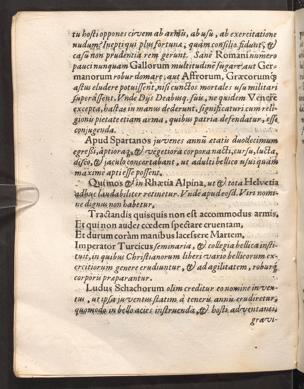 tu hosti oppones civem ab armis, ab usu, ab exercitatione
nudum? Inepti qui plus fortunæ, quàm consilio fidunt, &
casu non prudentia rem gerunt. Sanè Romani numero
pauci nunquam Gallorum multitudinē fugare, aut Ger-
manorum robur domare, aut Affrorum, Græcorumq;
astus eludere potuissent, nisi cunctos mortales usu militari
superâssent. Vnde Dijs Deabusq; suis, ne quidem Venere
excepta, hastae in manus dederunt, significaturi cum reli-
gionis pietate etiam arma, quibus patria defendatur, esse
conjungenda.
Apud Spartanos juvenes annū ætatis duodecimum
egressi, aptiora, & vegetiora corpora nacti, cursu, lucta,
disco, & jaculo concertabant, ut adulti bellico usui quàm
maximè apti esse possent.
Qui mos & in Rhætia Alpina, ut & tota Helvetia
adhuc laudabiliter retinetur. Vnde apud eosd. Viri nomi-
ne dignus non habetur,
Tractandis quisquis non est accommodus armis,
Et qui non audet cædem spectare cruentam,
Et durum coràm manibus lacessere Martem.
Imperator Turcicus seminaria, & collegia bellica insti-
tuit, in quibus Christianorum liberi vario bellicorum ex-
ercitiorum genere erudiuntur, & ad agilitatem, roburq;
corporis præparantur.
Ludus Schachorum olim creditur eo nomine inven-
tus, ut ipsa juventus statim à teneris annis erudiretur,
quomodo in bello acies instruenda, & hosti adventanti
gravi-